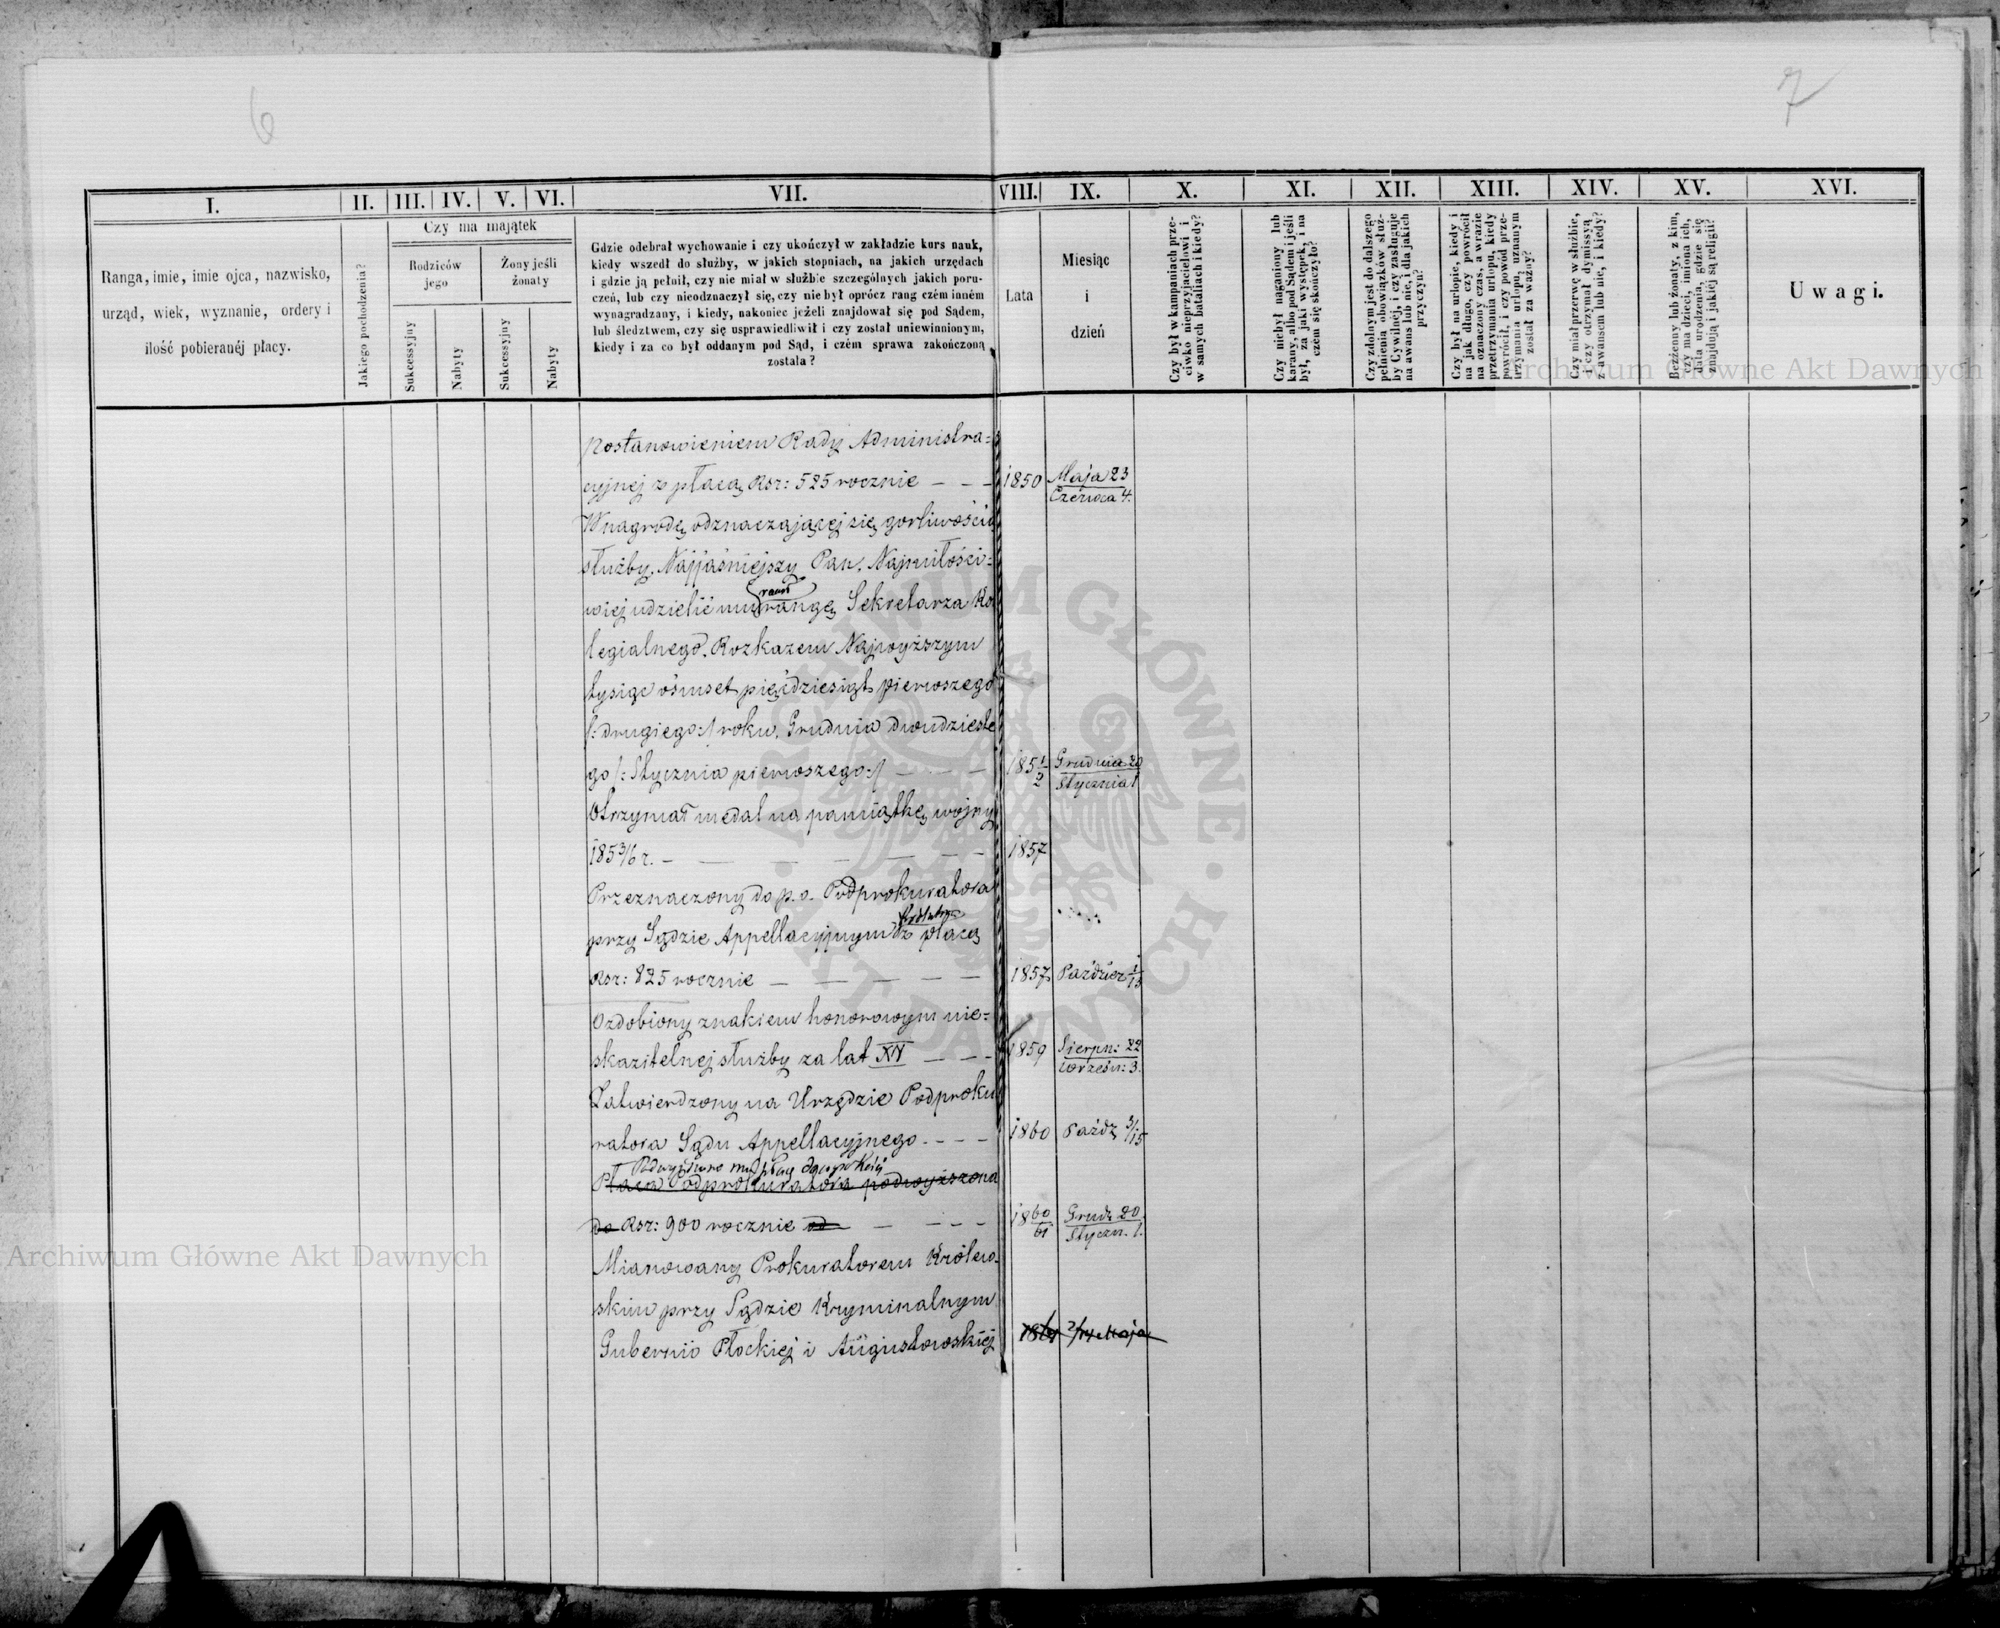 6
7
I.
II.
III.
IV.
V.
VI.
VII.
VIII.
IX.
X.
XI.
XII.
XIII.
XIV.
XV.
XVI.
Ranga, imie, imie ojca, nazwisko,
urząd, wiek, wyznanie, ordery i
ilość pobieranéj płacy.
Jakiego pochodzenia?
Czy ma majątek
Rodziców
jego
Żony jeśli
żonaty
Sukcessyjny
Nabyty
Sukcessyjny
Nabyty
Gdzie odebrał wychowanie i czy ukończył w zakładzie kurs nauk,
kiedy wszedł do służby, w jakich stopniach, na jakich urzędach
i gdzie ją pełnił, czy nie miał w służbie szczególnych jakich poru-
czeń, lub czy nieodznaczył się, czy nie był oprócz rang czém inném
wynagradzany, i kiedy, nakoniec jeżeli znajdował się pod Sądem,
lub śledztwem, czy się usprawiedliwił i czy został uniewinnionym,
kiedy i za co był oddanym pod Sąd, i czém sprawa zakończoną
została?
Lata
Miesiąc
i
dzień
Czy był w kampaniach prze-
ciwko nieprzyjacielowi i
w samych bataliach i kiedy?
Czy niebył naganiony lub
karany, albo pod Sądem i jeśli
był, za jaki występek, i na
czém się skończyło?
Czy zdolnym jest do dalszego
pełnienia obowiązków służ-
by Cywilnéj, i czy zasługuje
na awans lub nie, i dla jakich
przyczyn?
Czy był na urlopie, kiedy i
na jak długo, czy powrócił
na oznaczony czas, a w razie
przetrzymania urlopu, kiedy
powrócił, i czy powód prze-
trzymania urlopu, uznanym
został za ważny?
Czy miał przerwę w służbie,
i czy otrzymał dymissyą
z awansem lub nie, i kiedy?
Bezżenny lub żonaty, z kim,
czy ma dzieci, imiona ich,
data urodzenia, gdzie się
znajdują i jakiéj są religii?
Uwagi.
Postanowieniem Rady Administra=
cyjnej z płacą Rsr: 525 rocznie – – – 1850 Maja 23 Czerwca 4.
W nagrodę odznaczającej się gorliwością
służby. Najjaśniejszy Pan, Najmiłości=
raczył
wiej udzielić mu rangę Sekretarza Ko
legialnego. Rozkazem Najwyższym
tysiąc ośmset pięćdziesiąt pierwszego
/: drugiego :/ roku, Grudnia dwudzieste
go /: Stycznia pierwszego :/ – – – 185 1/2 Grudnia 20 Stycznia 1
Otrzymał medal na pamiątkę wojny
185 3/6 r. – – – – – – 1857
Przeznaczony do p. o. Podprokuratora
przy Sądzie Appellacyjnym z płacą
Rsr: 825 rocznie – – – – – 1857 Paździer 1/13
Ozdobiony znakiem honorowym nie=
skazitelnej służby za lat XV – – – 1859 Sierpn: 22 Wrześn: 3.
Zatwierdzony na Urzędzie Podproku
ratora Sądu Appellacyjnego. – – – 1860 Paźdz 3/15
Podwyższono mu płacę
Płaca Podprokuratora podwyższona
do Rsr: 900 rocznie od – – – – 1860/61 Grudz 20 Styczn. 1.
Mianowany Prokuratorem Królew-
skim przy Sądzie Kryminalnym
Gubernii Płockiej i Augustowskiej
Archiwum Główne Akt Dawnych
Archiwum Główne Akt Dawnych
ARCHIWUM GŁÓWNE · AKT DAWNYCH ·